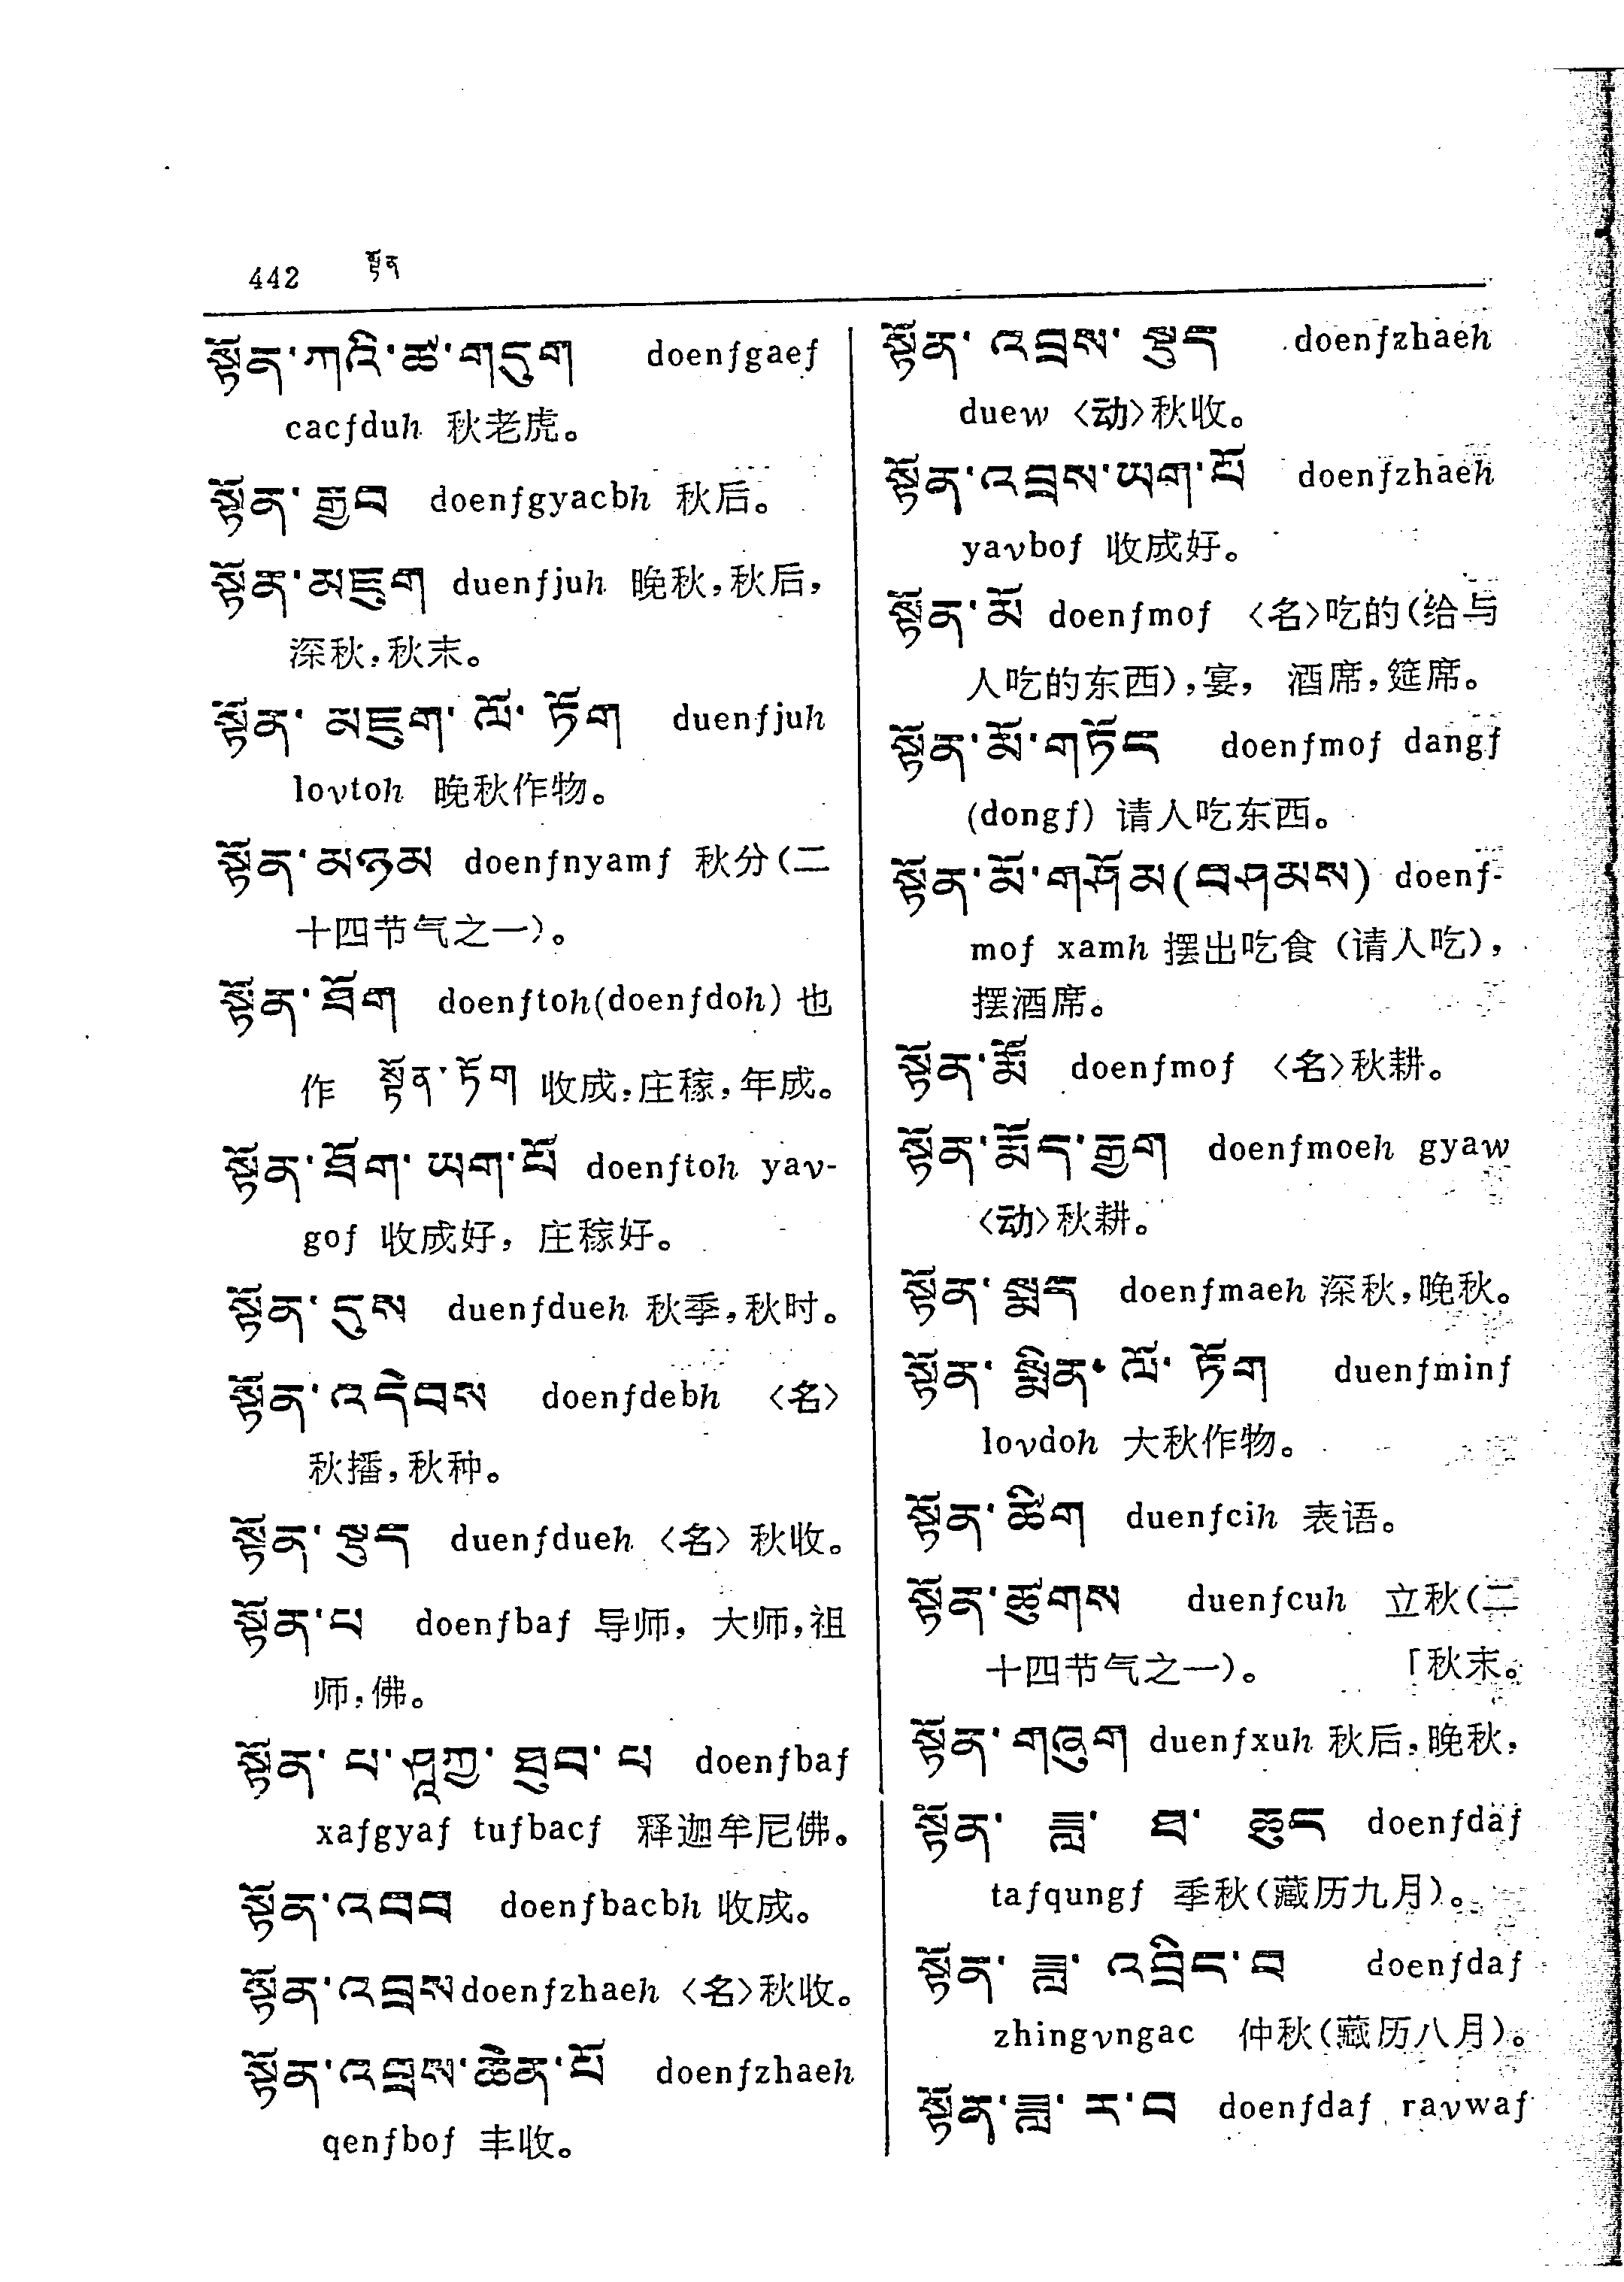 442 སྟོན
སྟོན་ཀའི་ཚ་གདུག doenfgaef
cacfduh 秋老虎。
སྟོན་རྒྱབ doenfgyacbh 秋后。
སྟོན་མཇུག duenfjuh 晚秋,秋后,
深秋,秋末。
སྟོན་མཇུག་ལོ་ཏོག duenfjuh
lovtoh 晚秋作物。
སྟོན་མཉམ doenfnyamf 秋分(二
十四节气之一)。
སྟོན་ཐོག doenftoh(doenfdoh) 也
作 སྟོན་ཏོག 收成,庄稼,年成。
སྟོན་ཐོག་ཡག་པོ doenftoh yav-
gof 收成好, 庄稼好。
སྟོན་དུས duenfdueh 秋季,秋时。
སྟོན་འདེབས doenfdebh 〈名〉
秋播,秋种。
སྟོན་སྡུད duenfdueh 〈名〉 秋收。
སྟོན་པ doenfbaf 导师, 大师,祖
师,佛。
སྟོན་པ་ཤཱཀྱ་ཐུབ་པ doenfbaf
xafgyaf tufbacf 释迦牟尼佛。
སྟོན་འབབ doenfbacbh 收成。
སྟོན་འབྲས doenfzhaeh 〈名〉秋收。
སྟོན་འབྲས་ཆེན་པོ doenfzhaeh
qenfbof 丰收。
སྟོན་འབྲས་སྡུད doenfzhaeh
duew 〈动〉秋收。
སྟོན་འབྲས་ཡག་པོ doenfzhaeh
yavbof 收成好。
སྟོན་མོ doenfmof 〈名〉吃的(给与
人吃的东西),宴, 酒席,筵席。
སྟོན་མོ་གཏོང doenfmof dangf
(dongf) 请人吃东西。
སྟོན་མོ་གཤོམ(བཤམས) doenf-
mof xamh 摆出吃食 (请人吃),
摆酒席。
སྟོན་རྨོ doenfmof 〈名〉秋耕。
སྟོན་རྨོད་རྒྱག doenfmoeh gyaw
〈动〉秋耕。
སྟོན་སྨད doenfmaeh 深秋,晚秋。
སྟོན་སྨིན་ལོ་ཏོག duenfminf
lovdoh 大秋作物。
སྟོན་ཚིག duenfcih 表语。
སྟོན་ཚུགས duenfcuh 立秋(二
十四节气之一)。 「秋末。
སྟོན་གཞུག duenfxuh 秋后,晚秋,
སྟོན་ཟླ་ཐ་ཆུང doenfdaf
tafqungf 季秋(藏历九月)。
སྟོན་ཟླ་འབྲིང་བ doenfdaf
zhingvngac 仲秋(藏历八月)。
སྟོན་ཟླ་ར་བ doenfdaf ravwaf